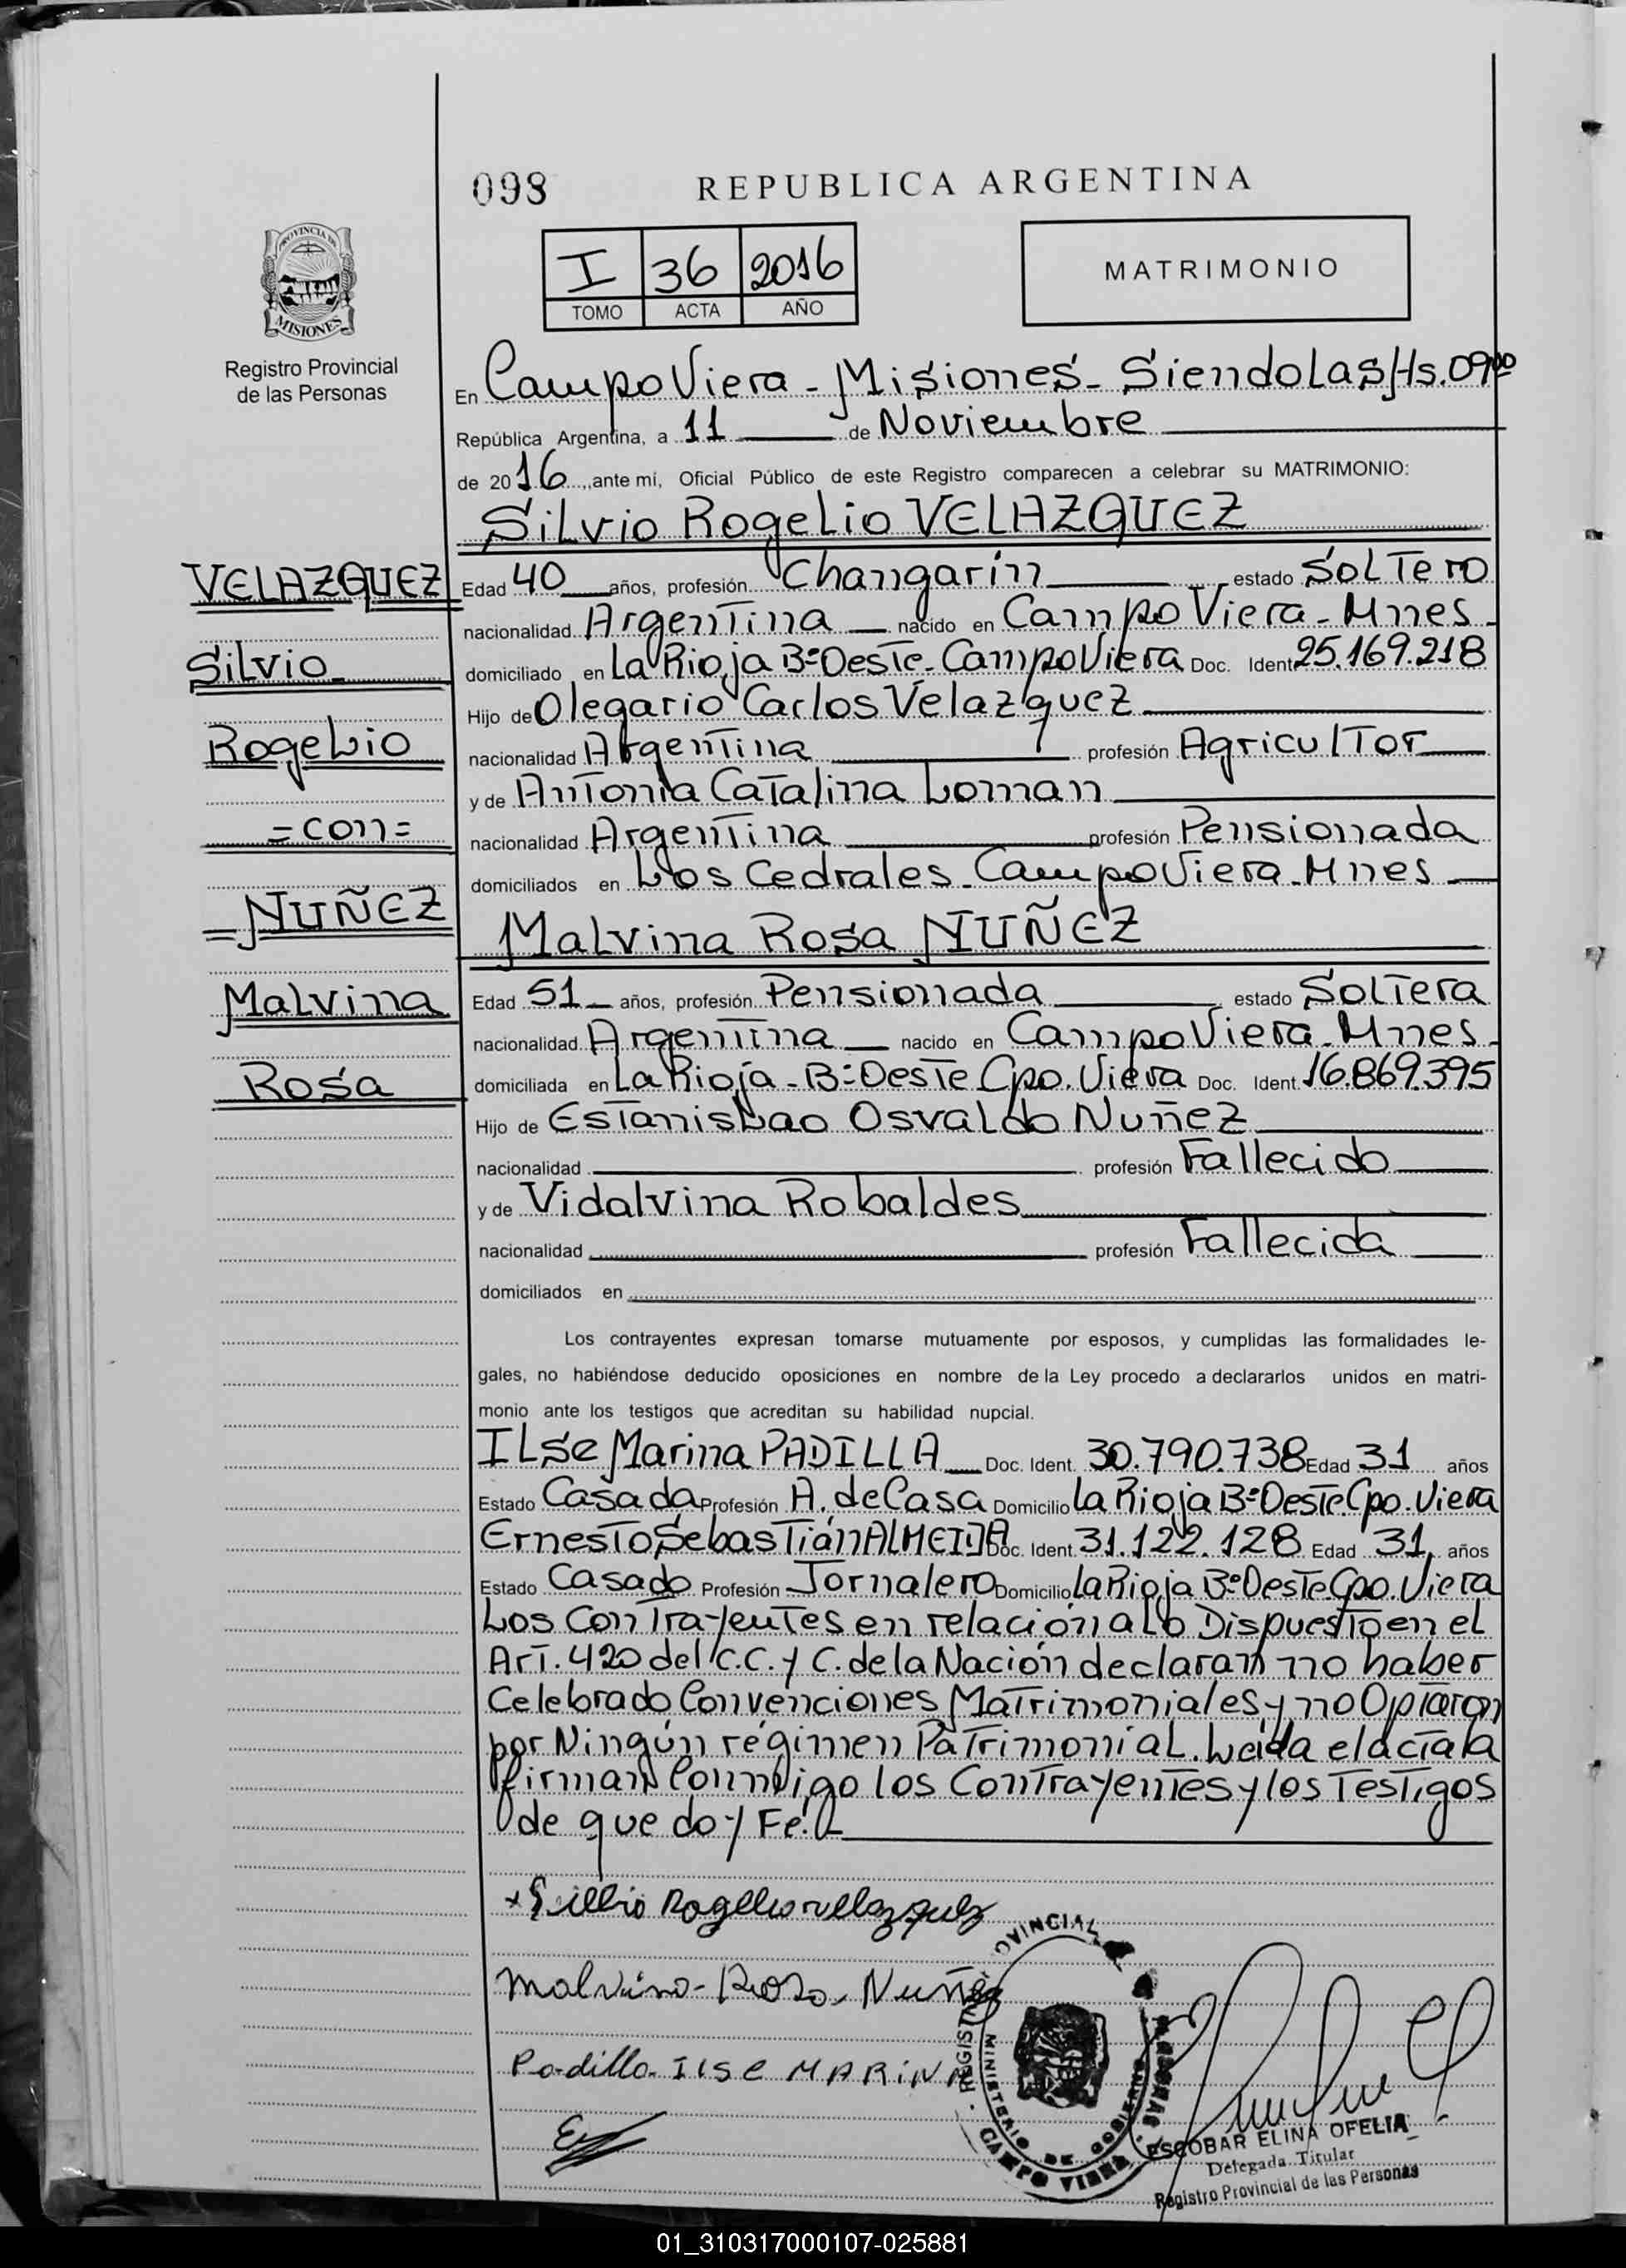 098
REPUBLICA ARGENTINA
I 36 2016
TOMO ACTA AÑO
MATRIMONIO
PROVINCIA DE
MISIONES
Registro Provincial
de las Personas
En Campo Viera - Misiones - Siendo Las Hs. 09⁰⁰
República Argentina, a 11 de Noviembre
de 2016, ante mí, Oficial Público de este Registro comparecen a celebrar su MATRIMONIO:
Silvio Rogelio VELAZQUEZ
VELAZQUEZ
Silvio
Rogelio
=con=
NUÑEZ
Malvina
Rosa
Edad 40 años, profesión Changarin estado Soltero
nacionalidad Argentina nacido en Campo Viera - Mnes
domiciliado en La Rioja Bº Oeste - Campo Viera Doc. Ident 25.169.218
Hijo de Olegario Carlos Velazquez
nacionalidad Argentina profesión Agricultor
y de Antonia Catalina Loman
nacionalidad Argentina profesión Pensionada
domiciliados en Los Cedrales - Campo Viera - Mnes
Malvina Rosa NUÑEZ
Edad 51 años, profesión Pensionada estado Soltera
nacionalidad Argentina nacido en Campo Viera - Mnes
domiciliada en La Rioja - Bº Oeste Cpo. Viera Doc. Ident. 16.869.395
Hijo de Estanislao Osvaldo Nuñez
nacionalidad profesión Fallecido
y de Vidalvina Robaldes
nacionalidad profesión Fallecida
domiciliados en
Los contrayentes expresan tomarse mutuamente por esposos, y cumplidas las formalidades le-
gales, no habiéndose deducido oposiciones en nombre de la Ley procedo a declararlos unidos en matri-
monio ante los testigos que acreditan su habilidad nupcial.
Ilse Marina PADILLA Doc. Ident. 30.790.738 Edad 31 años
Estado Casada Profesión A. de Casa Domicilio La Rioja Bº Oeste Cpo. Viera
Ernesto Sebastián ALMEIDA Doc. Ident. 31.122.128 Edad 31 años
Estado Casado Profesión Jornalero Domicilio La Rioja Bº Oeste Cpo. Viera
Los Contrayentes en relación a Lo Dispuesto en el
Art. 420 del C.C. y C. de la Nación declaran no haber
Celebrado Convenciones Matrimoniales y no Optaron
por Ningún régimen Patrimonial. Leida el acta la
firman Conmigo los Contrayentes y los Testigos
de que doy Fé.
x Sillvio Rogelio velazquez
Malvina - Rosa - Nuñez
Padilla Ilse MARINA
REGISTRO PROVINCIAL PERSONAS
MINISTERIO DE GOBIERNO
CAMPO VIERA
ESCOBAR ELINA OFELIA
Delegada Titular
Registro Provincial de las Personas
01_310317000107-025881